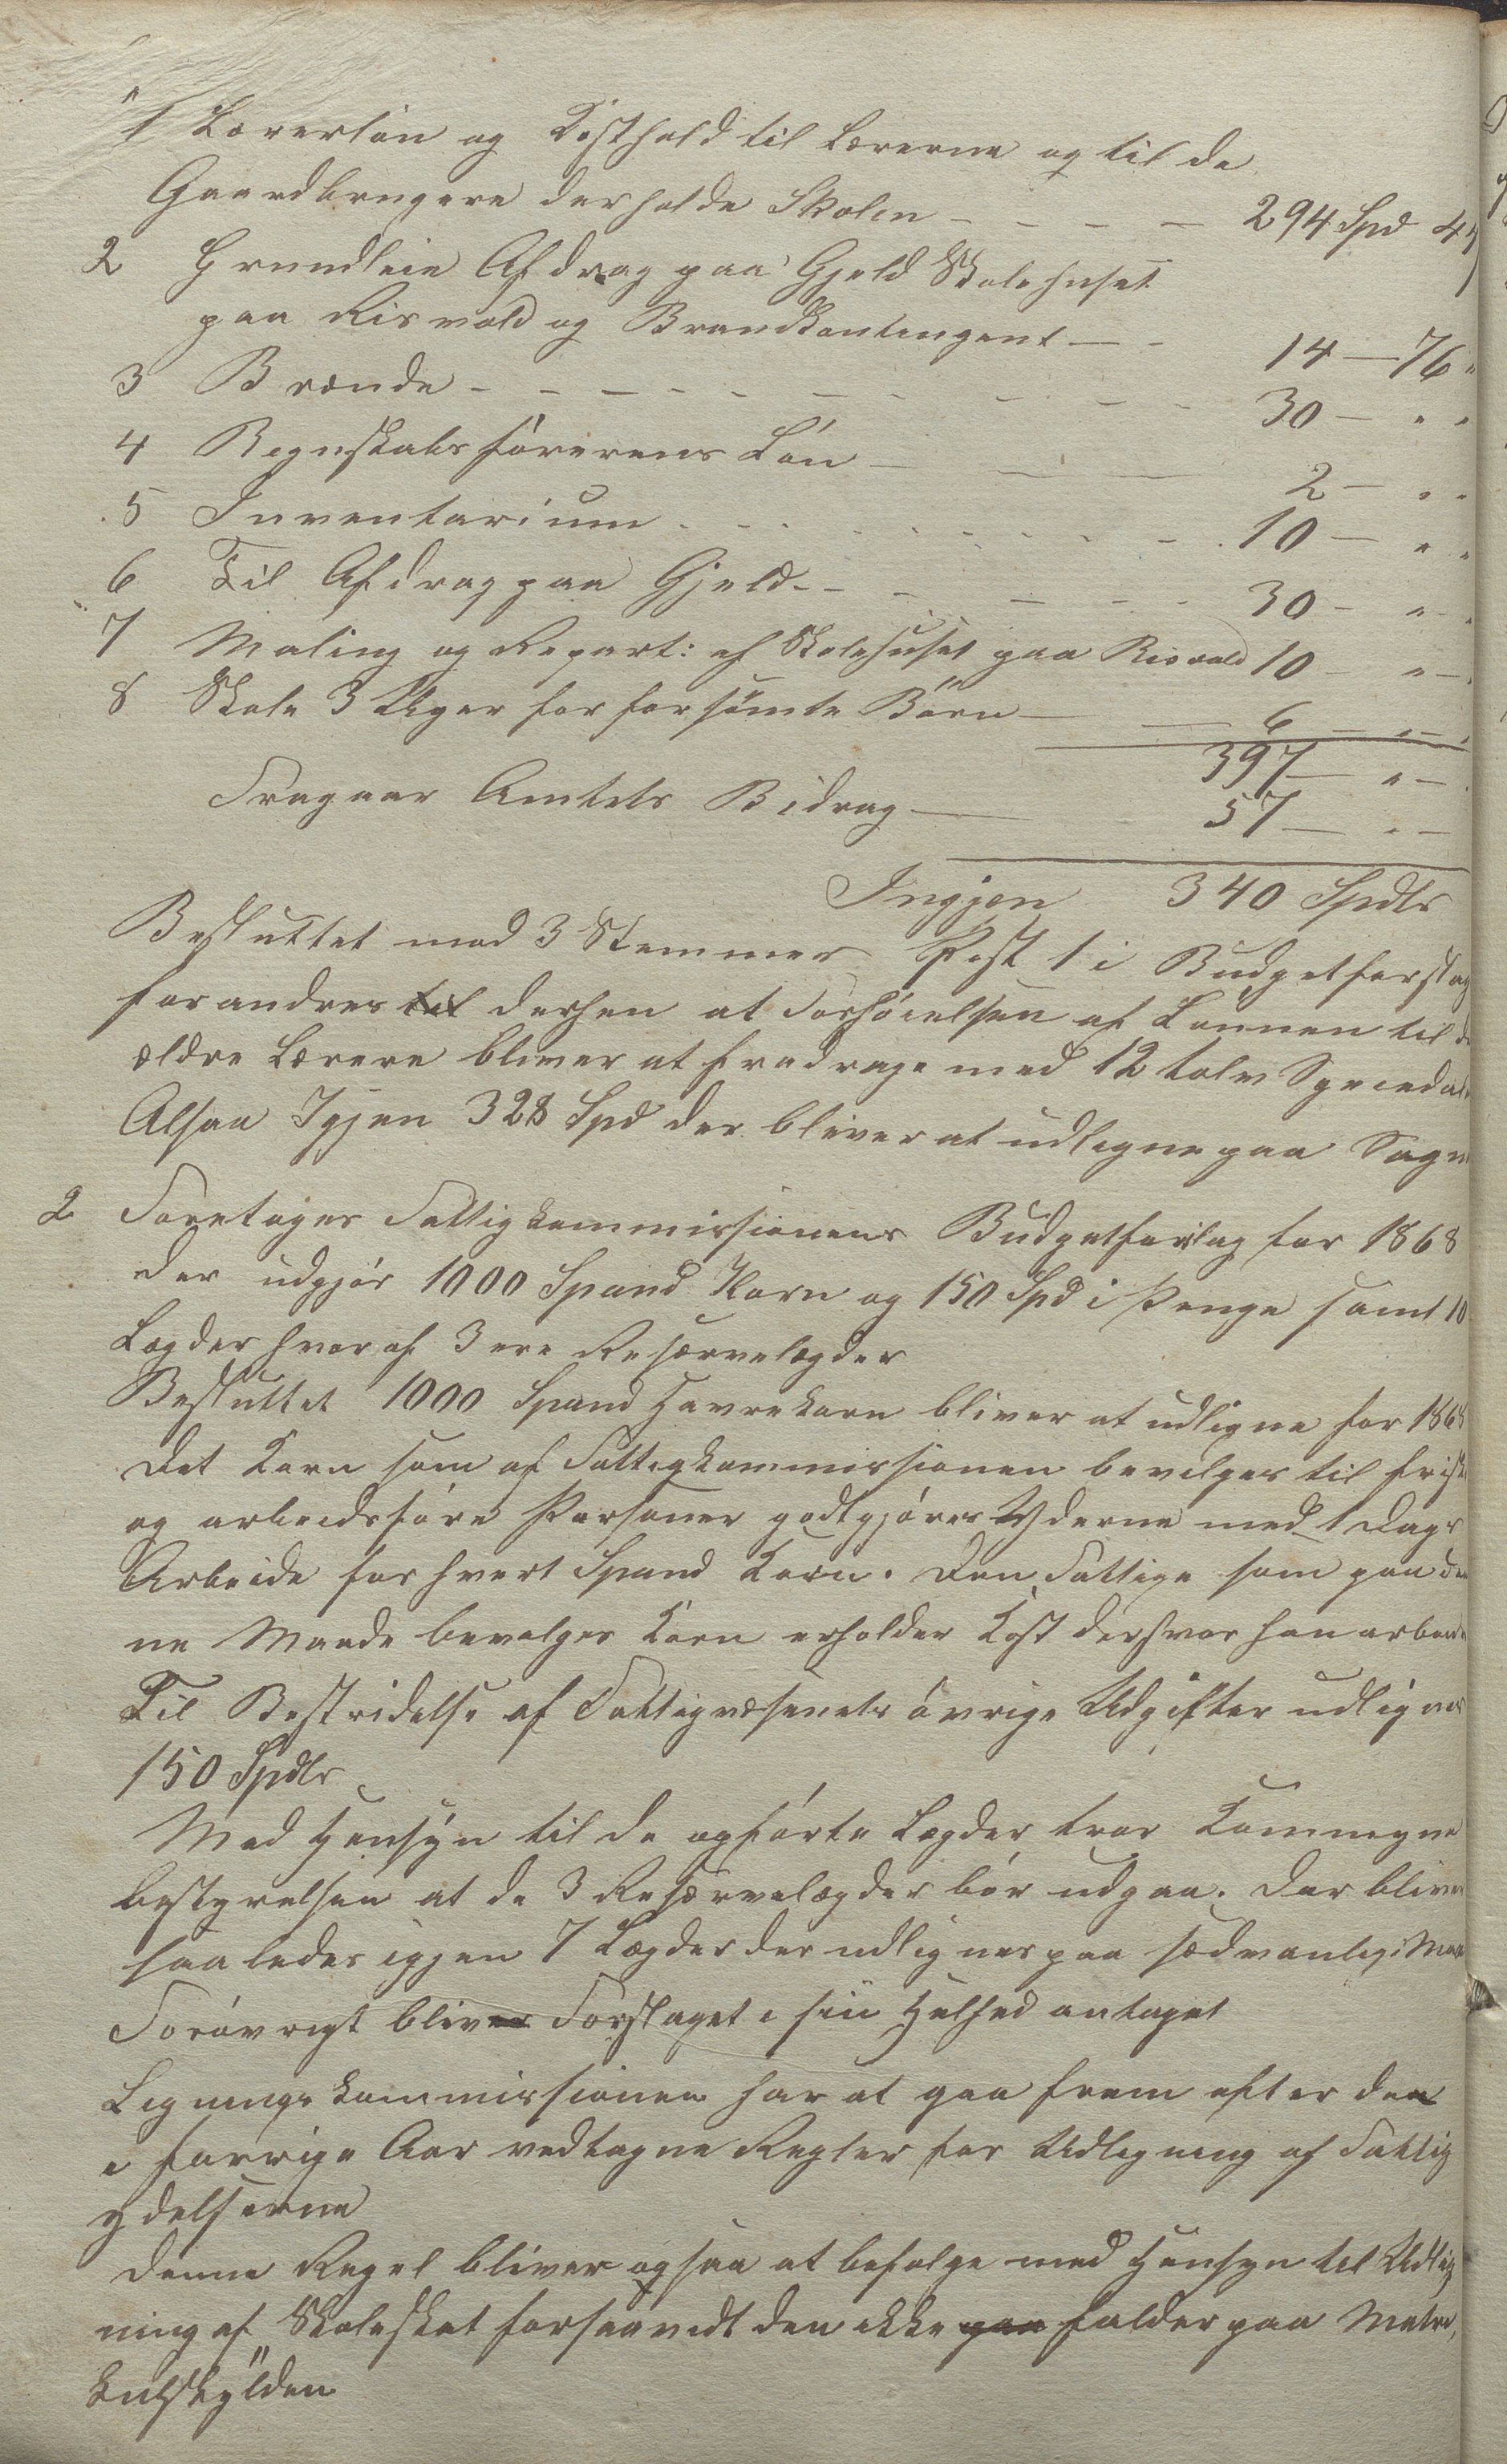 1 Lærerløn og Kosthold til Lærerne og til de
Gaardbrugere der holde Skolen - - - - 294 Spd
2 Grundleie Afdrag paa Gjeld Skolehuset
paa Risvold og Brandkontingent - - 14 - 76 "
3 Brænde - - - - - - - - - 30 - " "
4 Regnskabsførerens Løn - - - 2 - " "
5 Inventarium - - - - - - - - 10 - " "
6 Til Afdrag paa Gjeld - - - - - - 30 - " -
7 Maling og Repart: af Skolehuset paa Risvold 10 - " -
8 Skole 3 Uger for forsømte Børn - - 6 - " -
397 - " -
Fragaar Amtets Bidrag - 57 - " -
Ingjen 340 Spdlr
Besluttet med 3 Stemmer Post 1 i Budgetforslag
forandres til derhen at Forhøielsen af Lønnen til de
ældre Lærere bliver at fradrage med 12 tolv Speciedal
Alsaa Igjen 328 Spd der bliver at udlignepaa Sogn
2 Foretoges Fattigkommissionens Budgetforslag for 1868
der udgjør 1000 Spand Korn og 150 Spd i Penge samt 10
Lægder hvoraf 3 ere Reservelægder
Besluttet 1000 Spand Havrekorn bliver at udligne for 1868
Det Korn som af Fattigkommissionen bevilges til friske
og arbeidsføre Personer godtgjøres Yderne med 1 Dags
Arbeide for hvert Spand Korn. Den Fattige som paa den
ne Maade bevilges Korn erholder Kost derhvor han arbeide
Til Bestridelse af Fattigvæsenets øvrige Udgifter udlignes
150 Spdlr
Med Hensyn til de opførte Lægder tror Kommune
bestyrelsen at de 3 Reservelægder bør udgaa. Der bliver
saaledes igjen 7 Lægder der udlignes paa sædvanlig Maade
Forøvrigt bliver Forslaget i sin Helhed antaget
Ligningskommissionen har at gaa frem efter den
i forrige Aar vedtagne Regler for Udligning af Fattig
ydelserne
Denne Regel bliver ogsaa at befolge med Hensyn til Udlig
ning af Skoleskat forsaavidt den ikke paa falder paa Matri,
kulskylden